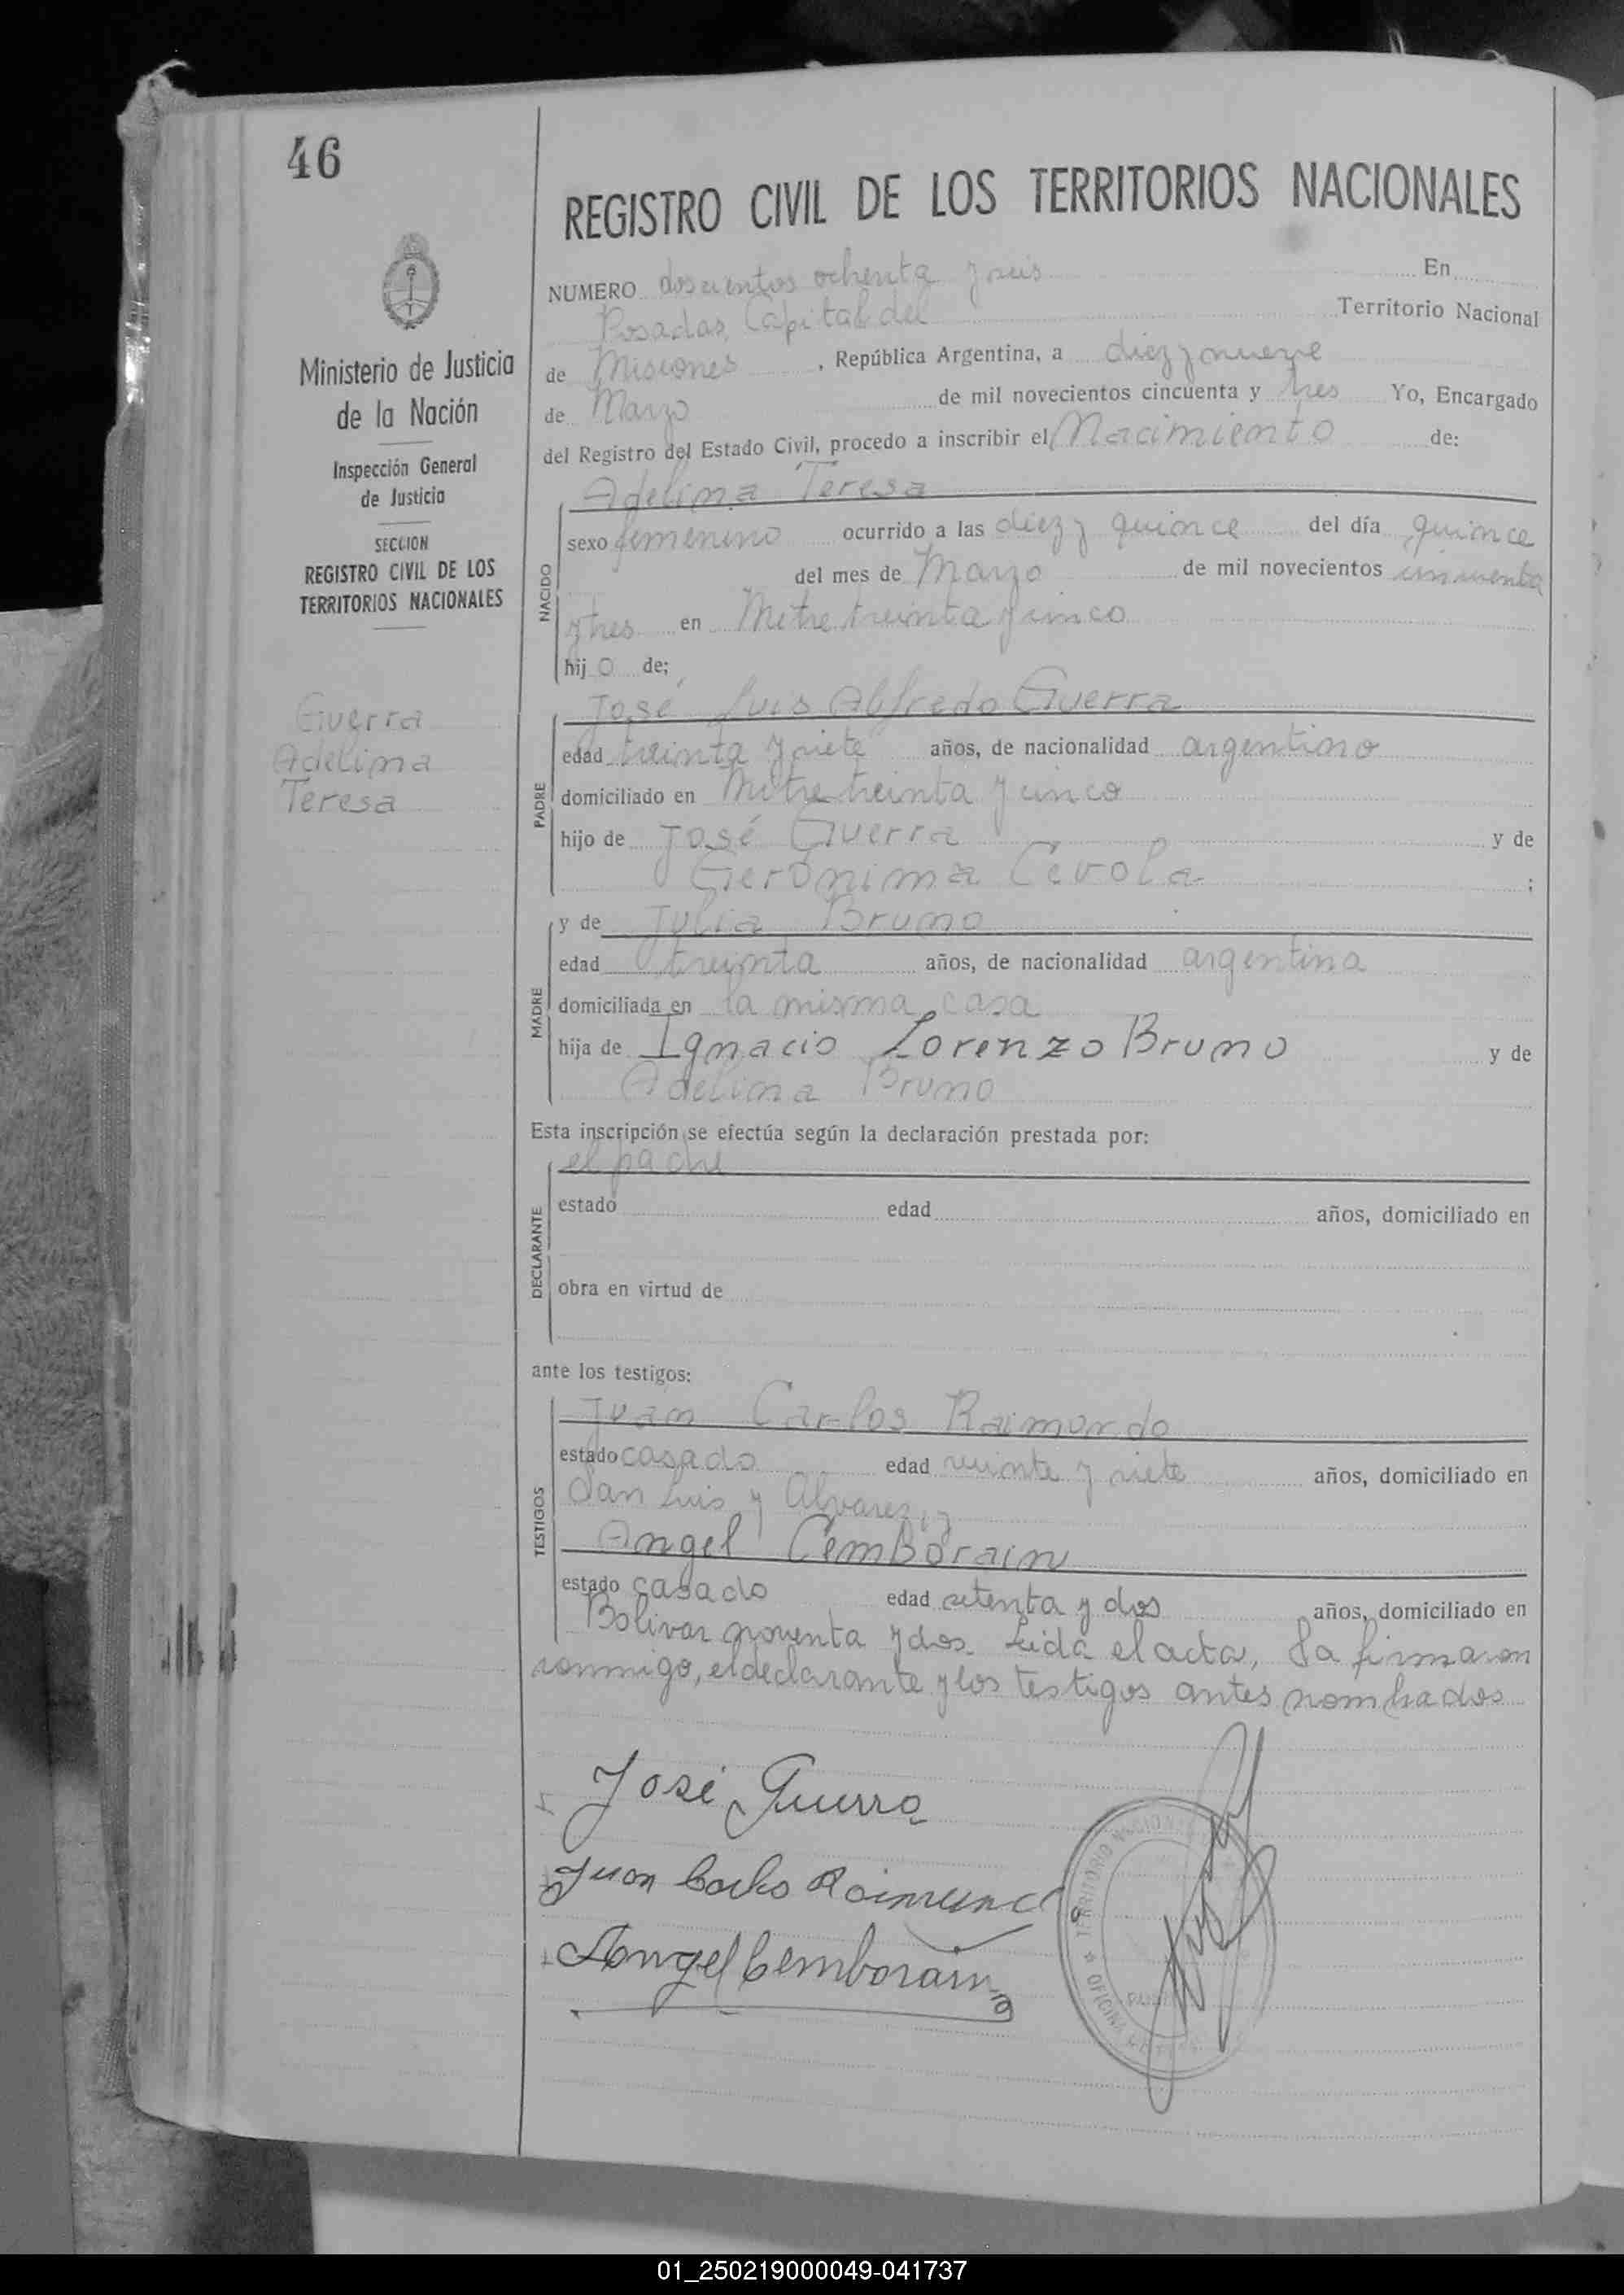 46
REGISTRO CIVIL DE LOS TERRITORIOS NACIONALES
NUMERO doscientos ochenta y seis En
Posadas, Capital del Territorio Nacional
de Misiones, República Argentina, a diez y nueve
de Marzo de mil novecientos cincuenta y tres Yo, Encargado
del Registro del Estado Civil, procedo a inscribir el Nacimiento de:
Adelina Teresa
NACIDO
sexo femenino ocurrido a las diez y quince del día quince
del mes de Marzo de mil novecientos cincuenta
y tres en Mitre treinta y cinco
hijo de;
Ministerio de Justicia
de la Nación
Inspección General
de Justicia
SECCION
REGISTRO CIVIL DE LOS
TERRITORIOS NACIONALES
Guerra
Adelina
Teresa
PADRE
José Luis Alfredo Guerra
edad treinta y siete años, de nacionalidad argentino
domiciliado en Mitre treinta y cinco
hijo de José Guerra y de
Gerónima Cévola ;
MADRE
y de Julia Bruno
edad treinta años, de nacionalidad argentina
domiciliada en la misma casa
hija de Ignacio Lorenzo Bruno y de
Adelina Bruno
Esta inscripción se efectúa según la declaración prestada por:
DECLARANTE
el padre
estado edad años, domiciliado en
obra en virtud de
ante los testigos:
TESTIGOS
Juan Carlos Raimondo
estado casado edad veinte y siete años, domiciliado en
San Luis y Alvarez, y
Angel Cemborain
estado casado edad setenta y dos años, domiciliado en
Bolivar noventa y dos. Leida el acta, la firmaron
conmigo, el declarante y los testigos antes nombrados
José Guerra
Juan Carlos
Angel Cemborain
TERRITORIO NACIONAL
OFICINA
01_250219000049-041737